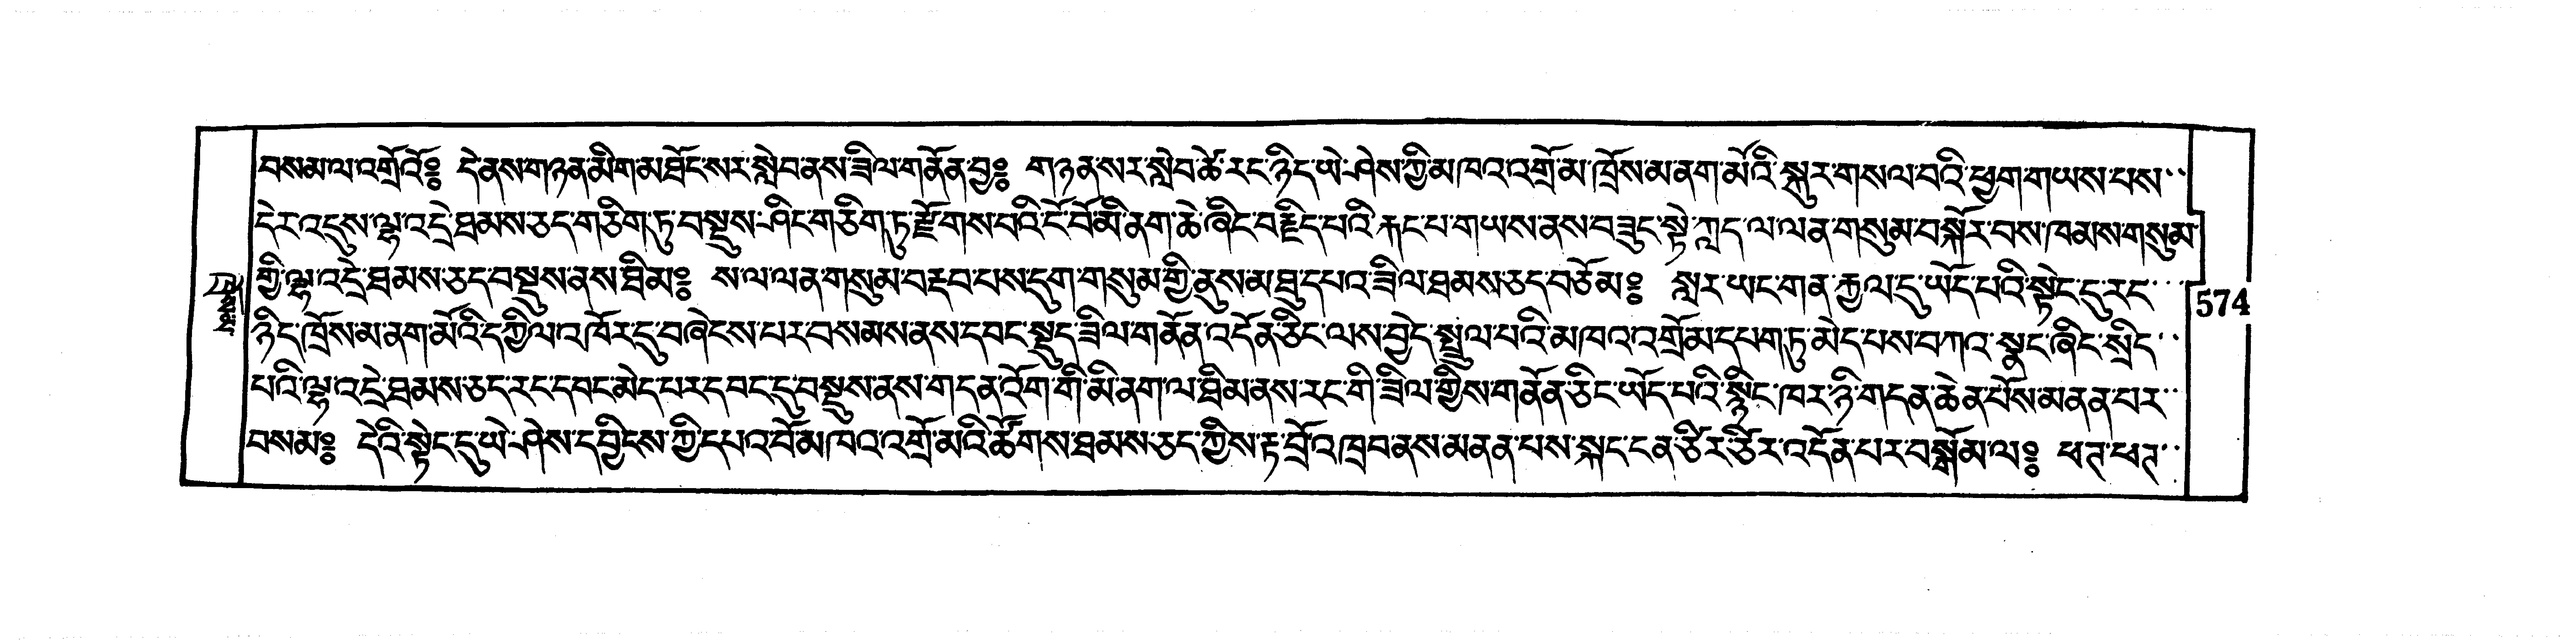 བསམ་ལ་འགྲོའོ༔ དེ་ནས་གཉན་མིག་མ་ཐོང་སར་སླེབ་ནས་ཟིལ་གནོན་བྱ༔ གཉན་སར་སླེབ་ཚེ་རང་ཉིད་ཡེ་ཤེས་ཀྱི་མཁའ་འགྲོ་མ་ཁྲོས་མ་ནག་མོའི་སྐུར་གསལ་བའི་ཕྱག་གཡས་པས
དེར་འདུས་ལྷ་འདྲེ་ཐམས་ཅད་གཅིག་ཏུ་བསྡུས་ཤིང་གཅིག་ཏུ་རྫོགས་པའི་ངོ་བོ་མི་ནག་ཆེ་ཞིང་བརྗིད་པའི་རྐང་པ་གཡས་ནས་བཟུང་སྟེ་ཀླད་ལ་ལན་གསུམ་བསྐོར་བས་ཁམས་གསུམ
གྱི་ལྷ་འདྲེ་ཐམས་ཅད་བསྡུས་ནས་ཐིམ༔ ས་ལ་ལན་གསུམ་བརྡབ་པས་དུག་གསུམ་གྱི་ནུས་མཐུ་དཔའ་ཟིལ་ཐམས་ཅད་བཅོམ༔ སླར་ཡང་གན་རྐྱལ་དུ་ཡོད་པའི་སྟེང་དུ་རང
ཉིད་ཁྲོས་མ་ནག་མོའི་དཀྱིལ་འཁོར་དུ་བཞེངས་པར་བསམས་ནས་དབང་སྡུད་ཟིལ་གནོན་འདོན་ཅིང་ལས་བྱེད་སྤྲུལ་པའི་མཁའ་འགྲོ་མ་དཔག་ཏུ་མེད་པས་བཀའ་སྣང་ཞིང་སྲིད
པའི་ལྷ་འདྲེ་ཐམས་ཅད་རང་དབང་མེད་པར་དབང་དུ་བསྡུས་ནས་གདན་འོག་གི་མི་ནག་ལ་ཐིམ་ནས་རང་གི་ཟིལ་གྱིས་གནོན་ཅིང་ཡོད་པའི་སྙིང་ཁར་ཉི་གདན་ཆེན་པོས་མནན་པར
བསམ༔ དེའི་སྟེང་དུ་ཡེ་ཤེས་དབྱིངས་ཀྱི་དཔའ་བོ་མཁའ་འགྲོ་མའི་ཚོགས་ཐམས་ཅད་ཀྱིས་རྟ་བྲོ་འཁྲབ་ནས་མནན་པས་སྐད་ངན་ཙི་རི་ཙི་རི་འདོན་པར་བསྒོམ་ལ༔ ཕཊ་ཕཊ
574